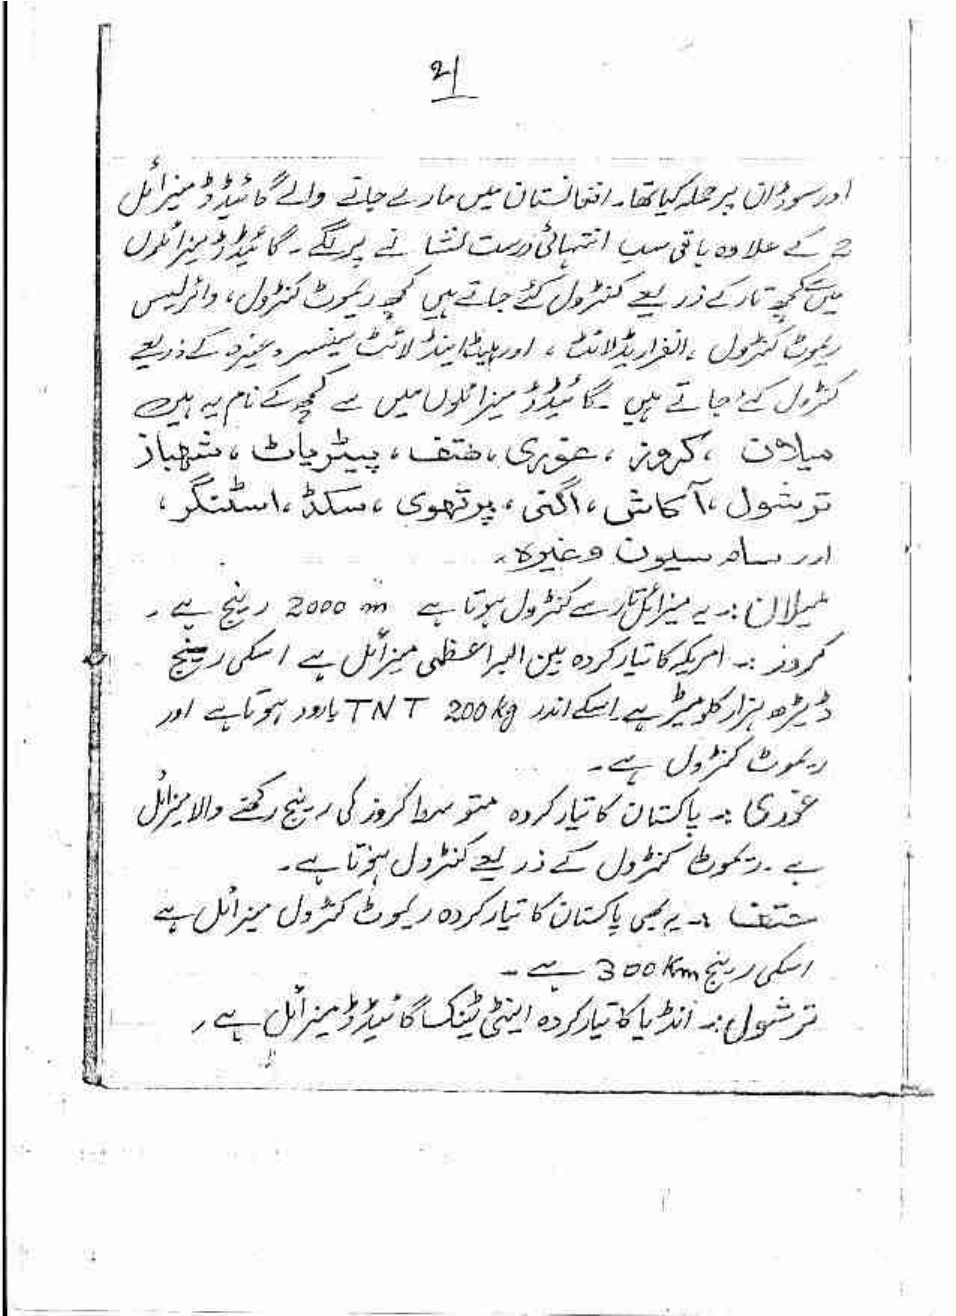 21
اور سوڈان پر حملہ کیا تھا۔ افغانستان میں مارے جانے والے گائیڈڈ میزائل
کے علاوہ باقی سب انتہائی درست نشانے پر لگے۔ گائیڈڈ میزائلوں
میں سے کچھ تار کے ذریعے کنٹرول کئے جاتے ہیں کچھ ریموٹ کنٹرول، وائرلیس
ریموٹ کنٹرول، انفراریڈ لائٹ، اور ہیٹ اینڈ لائٹ سینسر وغیرہ کے ذریعے
کنٹرول کئے جاتے ہیں۔ گائیڈڈ میزائلوں میں سے کچھ کے نام یہ ہیں
میلان، کروز، غوری، حتف، پیٹریاٹ، شہباز
ترشول، آکاش، اگنی، پرتھوی، سکڈ، اسٹنگر،
اور سام سیون وغیرہ۔
میلان :۔ یہ میزائل تار سے کنٹرول ہوتا ہے 2000 m رینج ہے۔
کروز :۔ امریکہ کا تیار کردہ بین البراعظمی میزائل ہے اسکی رینج
ڈیڑھ ہزار کلومیٹر ہے اسکے اندر 200 kg TNT بارود ہوتا ہے اور
ریموٹ کنٹرول ہے۔
غوری :۔ پاکستان کا تیار کردہ متوسط کروز کی رینج رکھنے والا میزائل
ہے۔ ریموٹ کنٹرول کے ذریعے کنٹرول ہوتا ہے۔
حتف :۔ یہ بھی پاکستان کا تیار کردہ ریموٹ کنٹرول میزائل ہے
اسکی رینج 300 Km ہے۔
ترشول :۔ انڈیا کا تیار کردہ اینٹی ٹینک گائیڈڈ میزائل ہے،